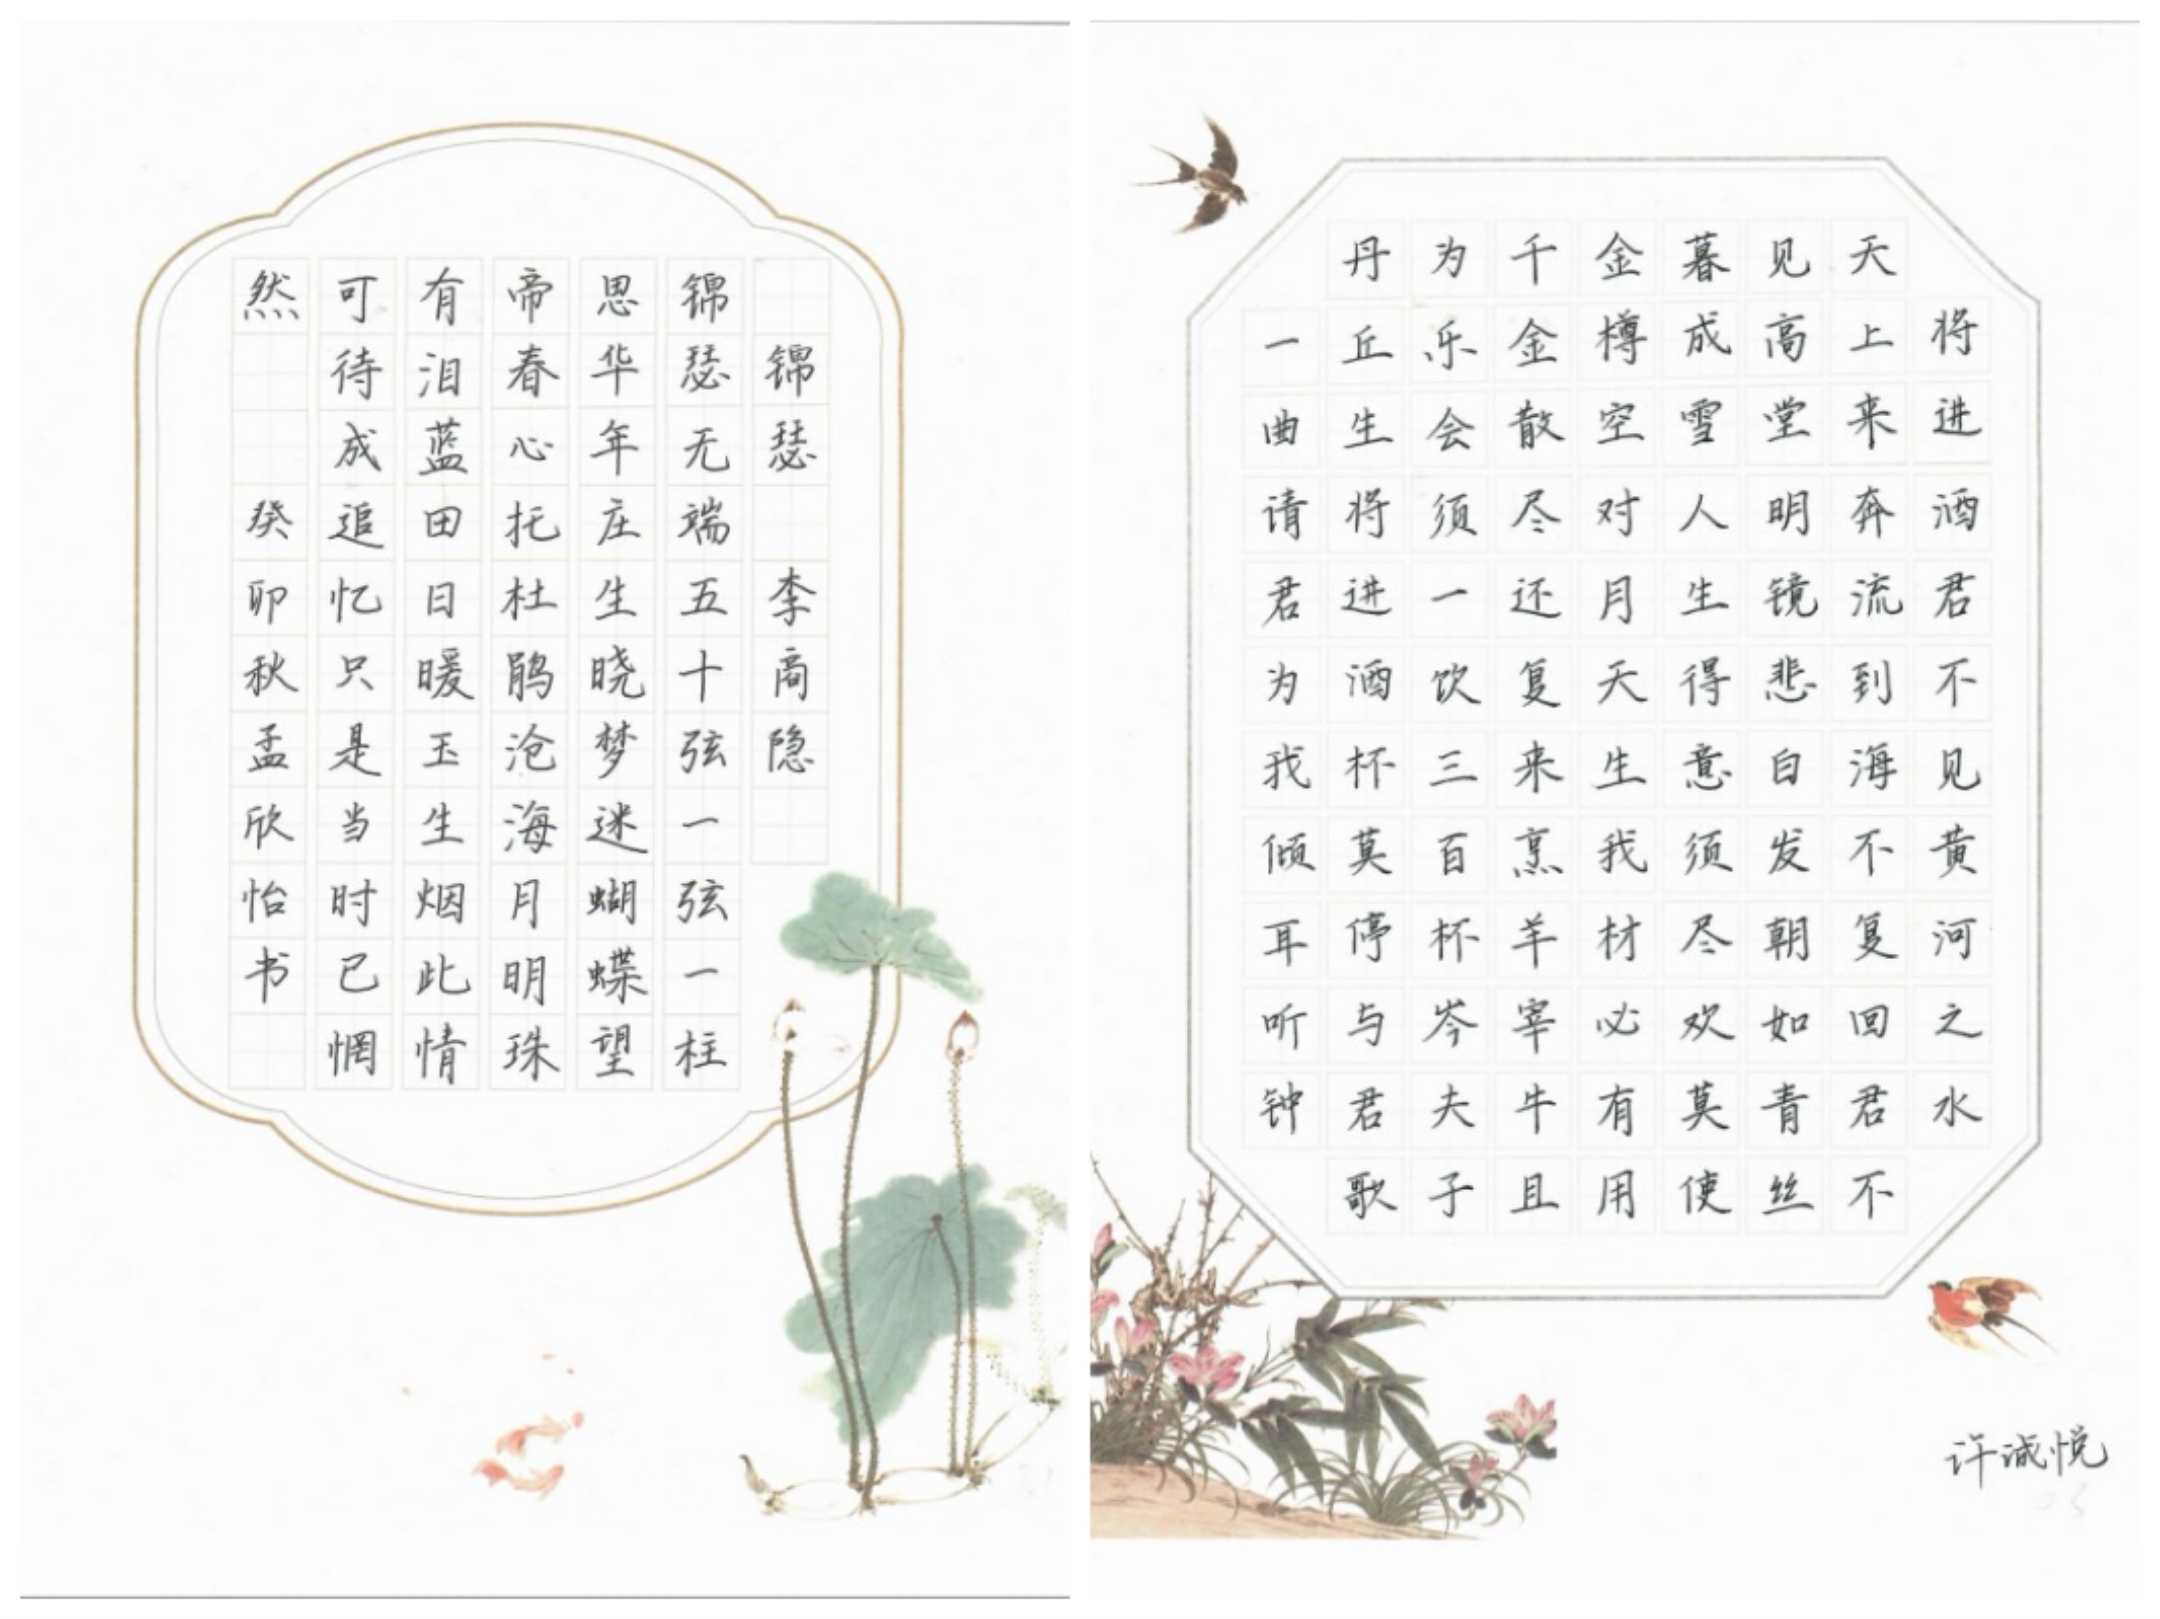 锦瑟李商隐
锦瑟无端五十弦一弦一柱
思华年庄生晓梦迷蝴蝶望
帝春心托杜鹃沧海月明珠
有泪蓝田日暖玉生烟此情
可待成追忆只是当时已惘
然癸卯秋孟欣怡书
将进酒君不见黄河之水
天上来奔流到海不复回君不
见高堂明镜悲白发朝如青丝
暮成雪人生得意须尽欢莫使
金樽空对月天生我材必有用
千金散尽还复来烹羊宰牛且
为乐会须一饮三百杯岑夫子
丹丘生将进酒杯莫停与君歌
一曲请君为我倾耳听钟
许诚悦